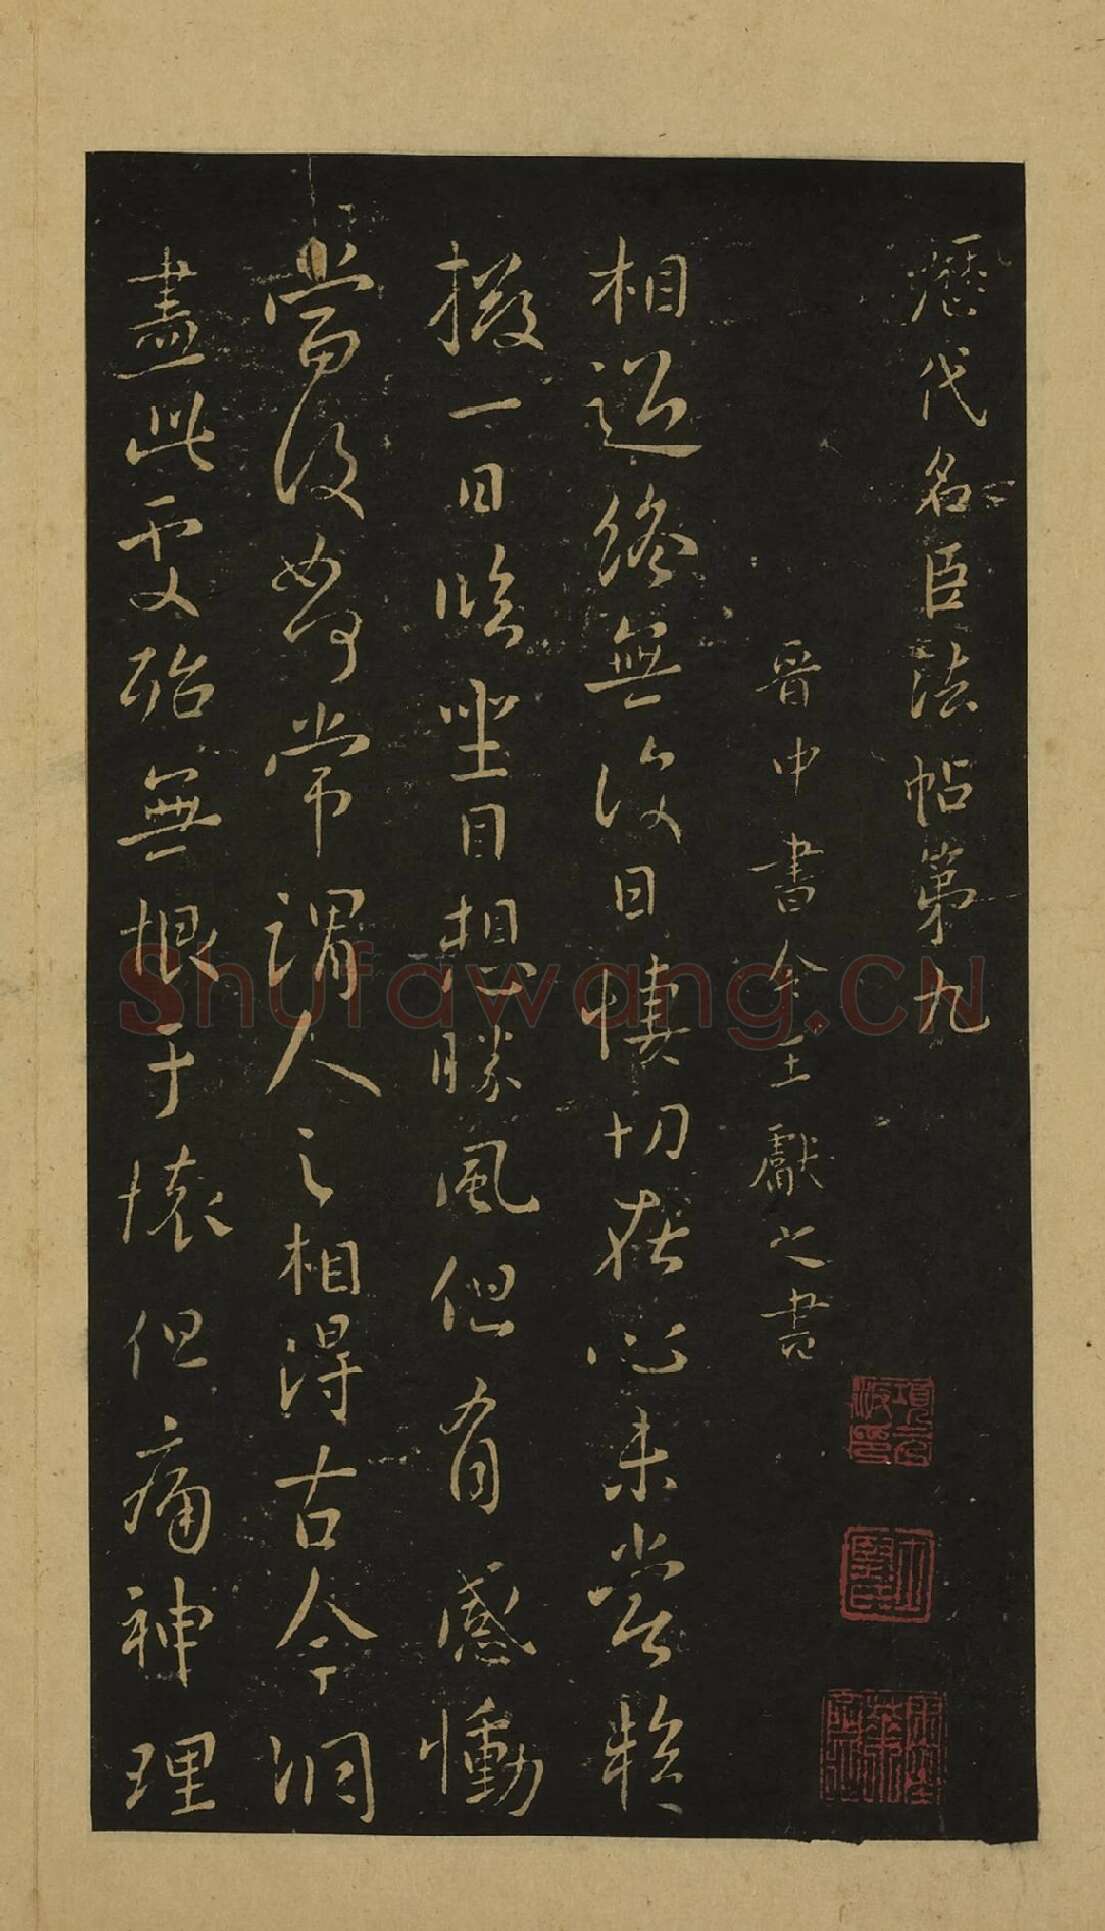 歷代名臣法帖第九
晋中書令王獻之書
相過終無復日悽切在心未嘗暫
掇一日臨坐目想勝風但有感慟
當復如何常謂人之相得古今洞
盡此處殆無恨于懷但痛神理
Shufawang.CN